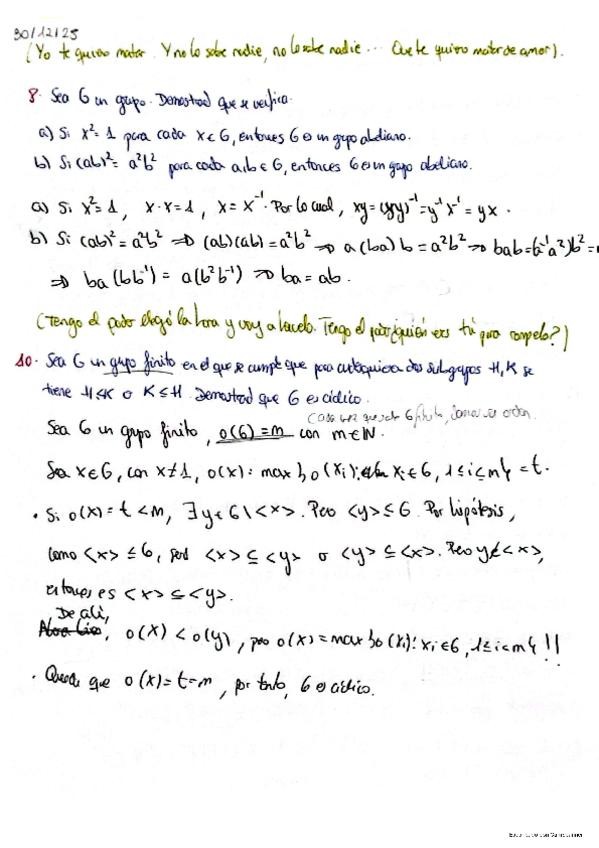 30/12/25
(Yo te quiero matar. Y no lo sabe nadie, no lo sabe nadie... Que te quiero matar de amor).
8. Sea G un grupo. Demostrad que se verifica.
a) Si x² = 1 para cada x ∈ G, entonces G es un grupo abeliano.
b) Si (ab)² = a²b² para cada a,b ∈ G, entonces G es un grupo abeliano.
a) Si x² = 1, x·x = 1, x = x⁻¹. Por lo cual, xy = (xy)⁻¹ = y⁻¹x⁻¹ = yx.
b) Si (ab)² = a²b² ⇒ (ab)(ab) = a²b² ⇒ a(ba)b = a²b² ⇒ bab = (a⁻¹a²)b² =
⇒ ba(bb⁻¹) = a(b²b⁻¹) ⇒ ba = ab.
(Tengo el llegó la hora y voy a hacerlo. Tengo el ¿quién eres tú para romperlo?)
10. Sea G un grupo finito en el que se cumple que para cualesquiera dos subgrupos H, K se
tiene H ≤ K o K ≤ H. Demostrad que G es cíclico.
(Cada vez que sale G finito, tomar su orden.
Sea G un grupo finito, o(G) = m con m ∈ ℕ.
Sea x ∈ G, con x ≠ 1, o(x) = max {o(xi): xi ∈ G, 1 ≤ i ≤ m} = t.
• Si o(x) = t < m, ∃ y ∈ G \ <x>. Pero <y> ≤ G. Por hipótesis,
como <x> ≤ G, será <x> ⊆ <y> o <y> ⊆ <x>. Pero y ∉ <x>,
entonces <x> ⊆ <y>.
De ahí,
o(x) < o(y), pero o(x) = max {o(xi): xi ∈ G, 1 ≤ i ≤ m} !!
• Queda que o(x) = t = m, por tanto, G es cíclico.